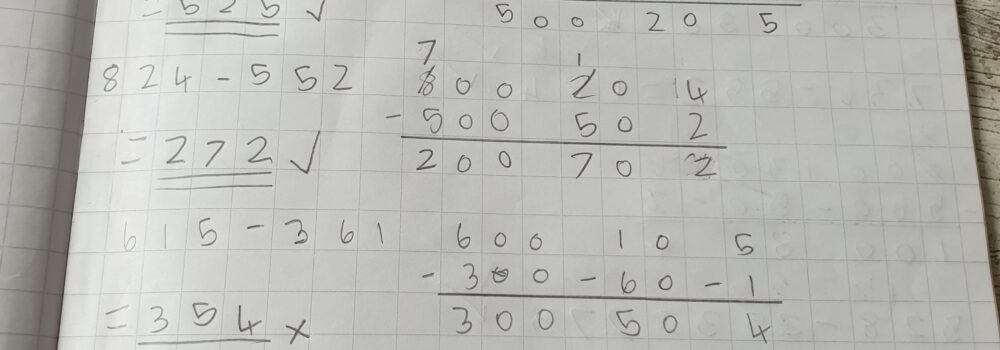 = 525 ✓ 500 20 5
7 1
824 - 552 800 20 14
- 500 50 2
= 272 ✓ 200 70 2
615 - 361 600 10 5
- 300 - 60 - 1
= 354 × 300 50 4